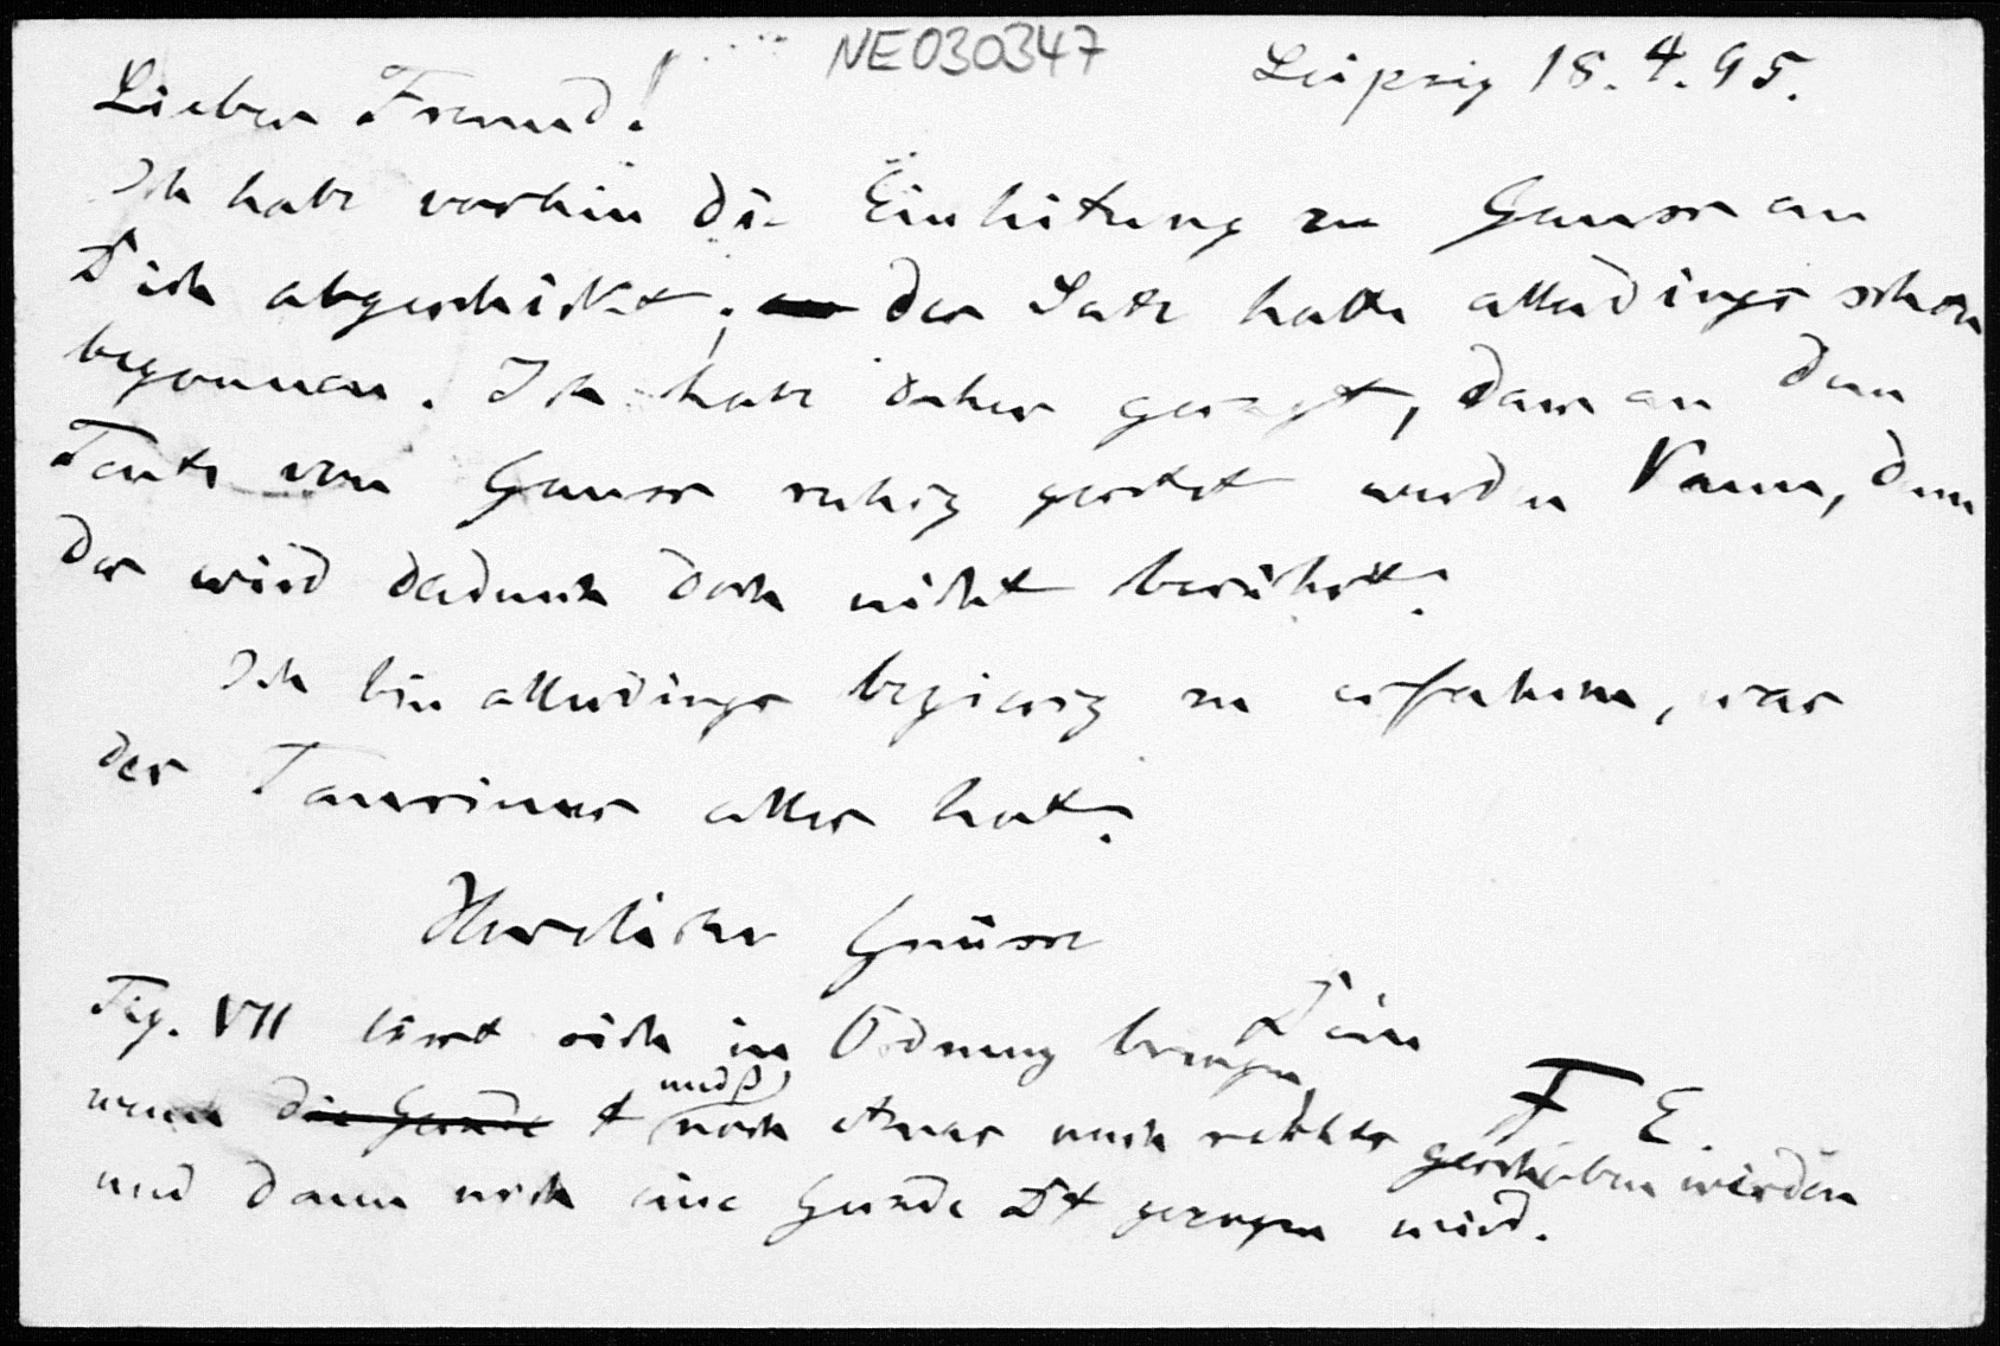 NE030347
Leipzig 18.4.95.
Lieber Freund!
Ich habe vorhin die Einleitung zu Gauss an
Dich abgeschickt; der Satz hatte allerdings schon
begonnen. Ich habe daher gesagt, dass an dem
Texte von Gauss ruhig gesetzt werden kann, denn
der wird dadurch doch nicht berührt.
Ich bin allerdings begierig zu erfahren, was
der Taurinus alles hat.
Herzliche Grüsse
Dein
F E.
Fig. VII lässt sich in Ordnung bringen,
und β)
wenn die Gerade noch etwas nach rechts geschoben werden
und dann noch eine Gerade gezogen wird.